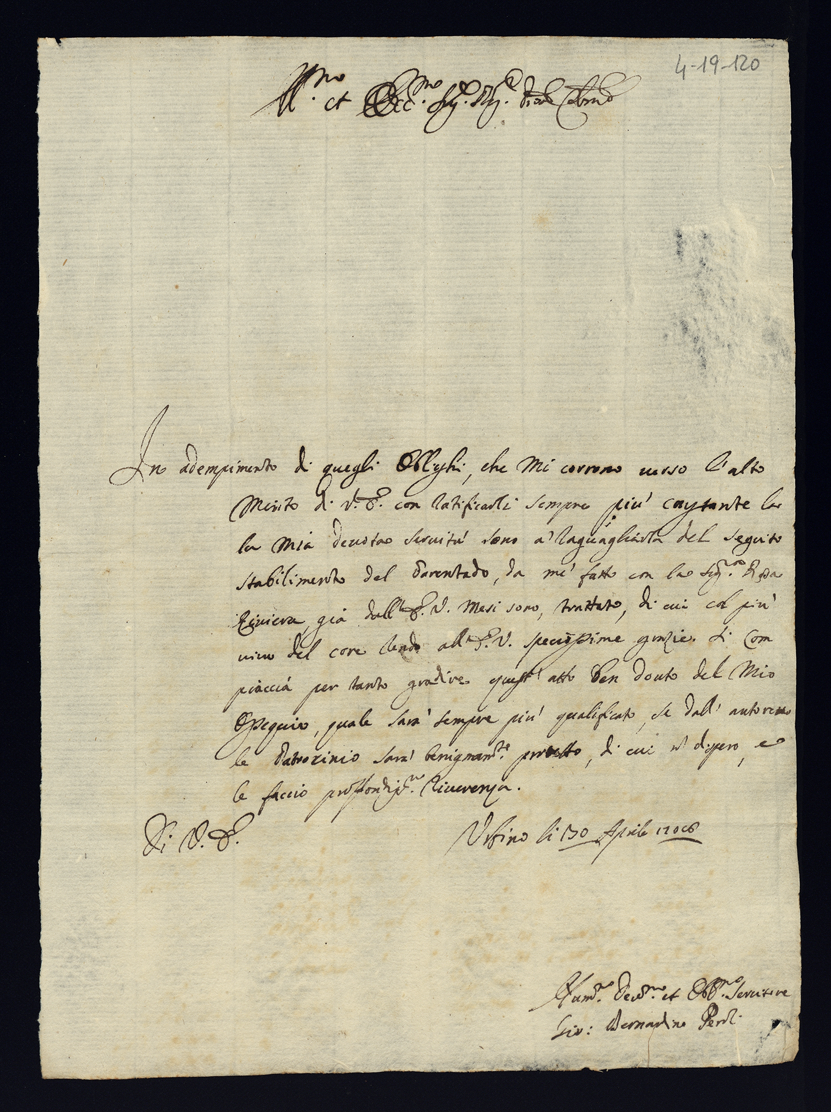 4-19-120
Ill.mo et Ecc.mo Sig. Sig.
In adempimento di quegli Oblighi, che mi corrono verso l'alto
Merito di V. E. con ratificarli sempre piu' costante la
la mia devota servitu' sono a' raguagliarla del seguito
stabilimento del Parentado, da me' fatto con la Sig.ra
Riviera, già dall'E. V. Mesi sono, trattato, di cui col piu'
vivo del core rendo all'E. V. speciosissime grazie. Si com
piaccia per tanto gradire quest'atto ben douto del Mio
Ossequio, quale sara' sempre piu' qualificato, se dall'
le Patrocinio sara' benignam.te protetto, di cui n' spero, e
le faccio profondiss.ma Riverenza.
Di V. E.
Urbino li 30 Aprile 1708
Hum.mo Devot.mo et Obb.mo Servitore
Gio: Bernardino